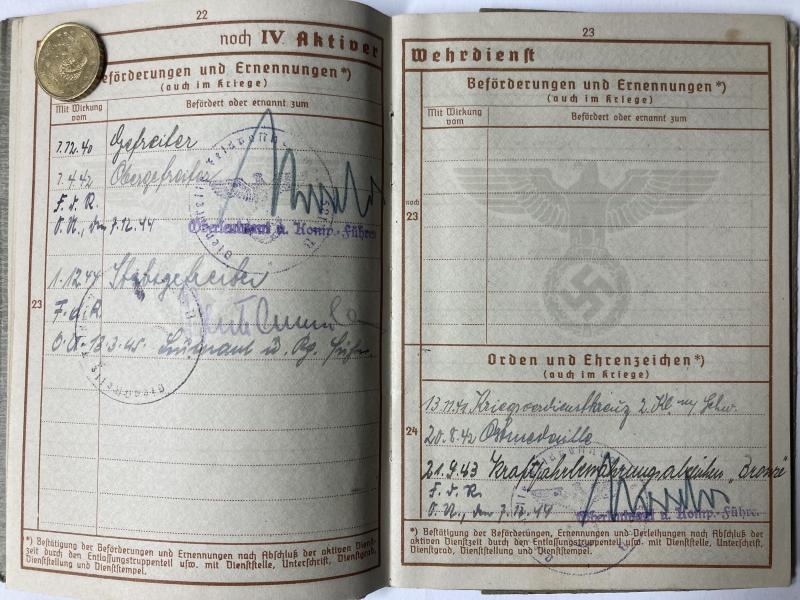 22
noch IV. Aktiver
Beförderungen und Ernennungen*)
(auch im Kriege)
Mit Wirkung vom
Befördert oder ernannt zum
1.12.40 Gefreiter
1.4.42 Obergefreiter
F. d. R.
O. U., den 7.12.44
Oberleutnant u. Komp.-Führer
1.12.44 Stabsgefreiter
23
F. d. R.
O. U. 13.3.45 Leutnant u.
*) Bestätigung der Beförderungen und Ernennungen nach Abschluß der aktiven Dienst-
zeit durch den Entlassungstruppenteil usw. mit Dienststelle, Unterschrift, Dienstgrad,
Dienststellung und Dienststempel.
23
Wehrdienst
Beförderungen und Ernennungen*)
(auch im Kriege)
Mit Wirkung vom
Befördert oder ernannt zum
noch
23
Orden und Ehrenzeichen*)
(auch im Kriege)
Kriegsverdienstkreuz 2. Kl. m. Schw.
24
20.8.42 Ostmedaille
21.9.43 Kraftfahrbewährungsabzeichen „Bronze"
F. d. R.
O. U., den 7.12.44
Oberleutnant u. Komp.-Führer
*) Bestätigung der Beförderungen, Ernennungen und Verleihungen nach Abschluß der
aktiven Dienstzeit durch den Entlassungstruppenteil usw. mit Dienststelle, Unterschrift,
Dienstgrad, Dienststellung und Dienststempel.